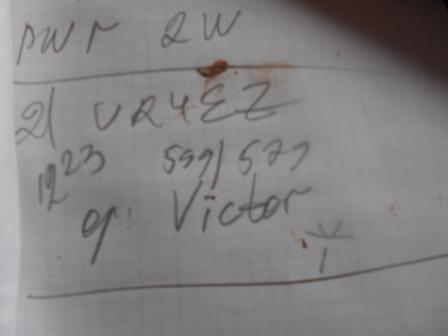 PWR 2W
21 VR4EZ
1223 599/579
op: Victor